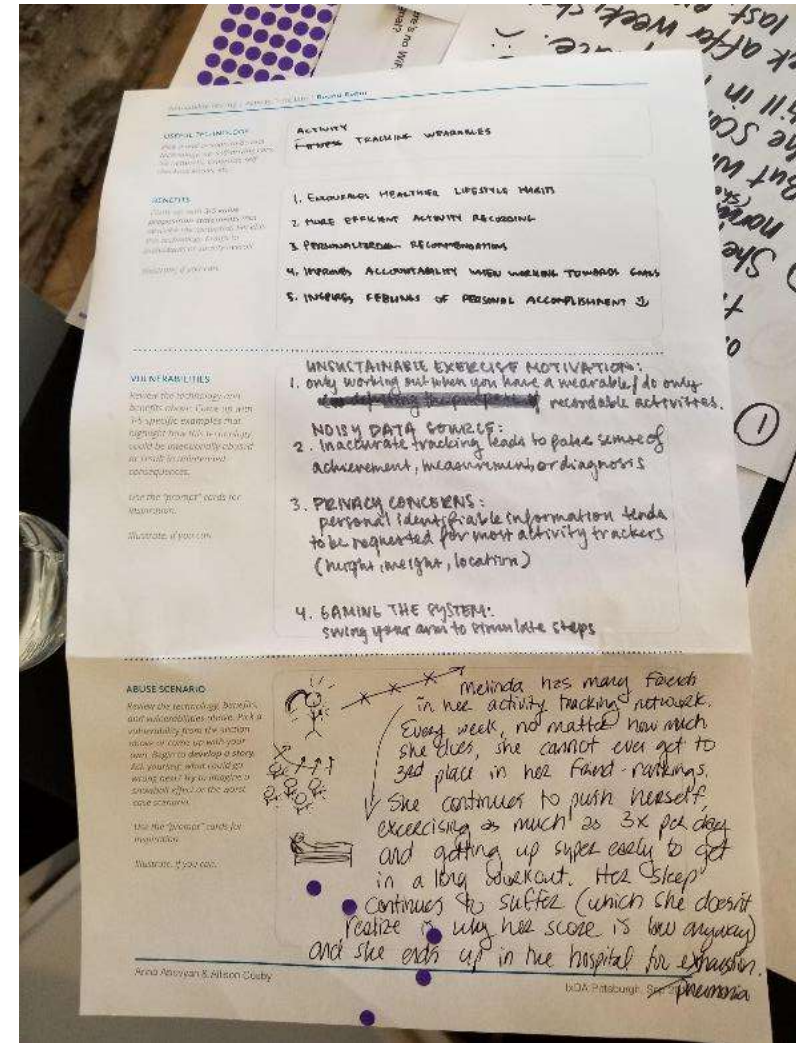 ere's no WiF
USEFUL TECHNOLOGY
ACTIVITY
FITNESS TRACKING WEARABLES
BENEFITS
1. ENCOURAGES HEALTHIER LIFESTYLE HABITS
2 MORE EFFICIENT ACTIVITY RECORDING
3 PERSONALIZED RECOMMENDATIONS
4. IMPROVES ACCOUNTABILITY WHEN WORKING TOWARDS GOALS
5. INSPIRES FEELINGS OF PERSONAL ACCOMPLISHMENT
Illustrate, if you can.
VULNERABILITIES
Review the technology and
benefits above. Come up with
1-5 specific examples that
highlight how this technology
could be intentionally abused
or result in unintended
consequences.
Use the "prompt" cards for
inspiration.
Illustrate, if you can.
UNSUSTAINABLE EXERCISE MOTIVATION:
1. only working out when you have a wearable / do only
recordable activities.
NOISY DATA SOURCE:
2. Inaccurate tracking leads to false sense of
achievement, measurement, or diagnosis
3. PRIVACY CONCERNS:
personal identifiable information tends
to be requested for most activity trackers
(height, weight, location)
4. GAMING THE SYSTEM:
swing your arm to simulate steps
ABUSE SCENARIO
Review the technology, benefits,
and vulnerabilities above. Pick a
vulnerability from the section
above or come up with your
own. Begin to develop a story.
Ask yourself: what could go
wrong next? Try to imagine a
snowball effect or the worst
case scenario.
Use the "prompt" cards for
inspiration.
Illustrate, if you can.
Melinda has many friends
in her activity tracking network.
Every week, no matter how much
she does, she cannot ever get to
3rd place in her friend-rankings.
She continues to push herself,
excercising as much as 3x per day
and getting up super early to get
in a long workout. Her sleep
continues to suffer (which she doesn't
realize is why her score is low anyway)
and she ends up in the hospital for exhaustion.
pneumonia
& Allison Cosby
IxDA Pittsburgh, Sep
last
after week, she
ill in
the sco
But w
She
1